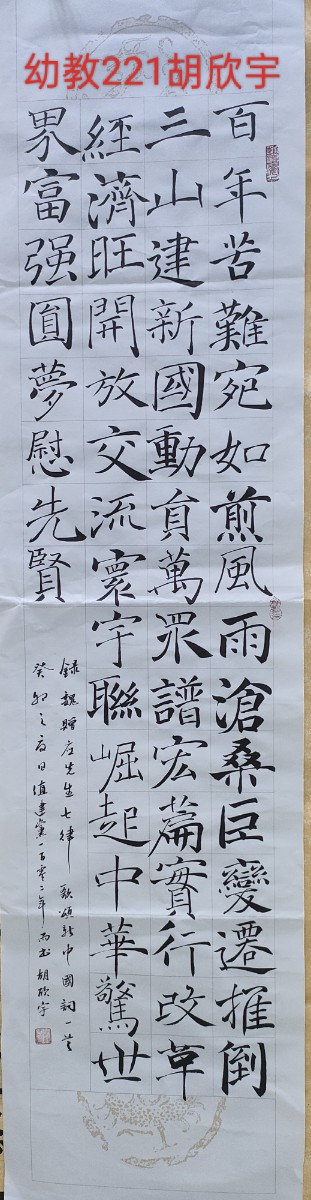 幼教221胡欣宇
百年苦難宛如煎風雨滄桑巨變遷推倒
三山建新國動員萬眾譜宏篇實行改革
經濟旺開放交流寰宇聯崛起中華驚世
界富强圓夢慰先賢
録魏贈庄先生七律歌頌新中國詞一首
癸卯之春日值建黨一百零二年而书胡欣宇